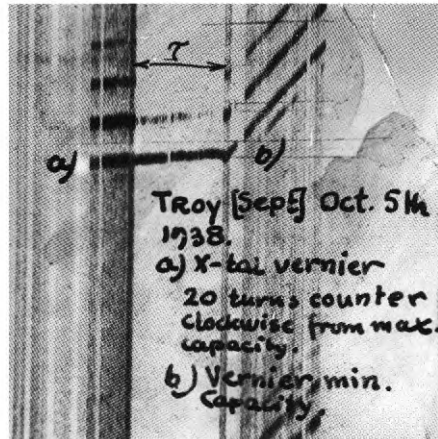 τ
a) b)
Troy [Sept] Oct. 5th
1938.
a) X-tal vernier
20 turns counter
clockwise from max.
capacity.
b) Vernier, min.
Capacity.